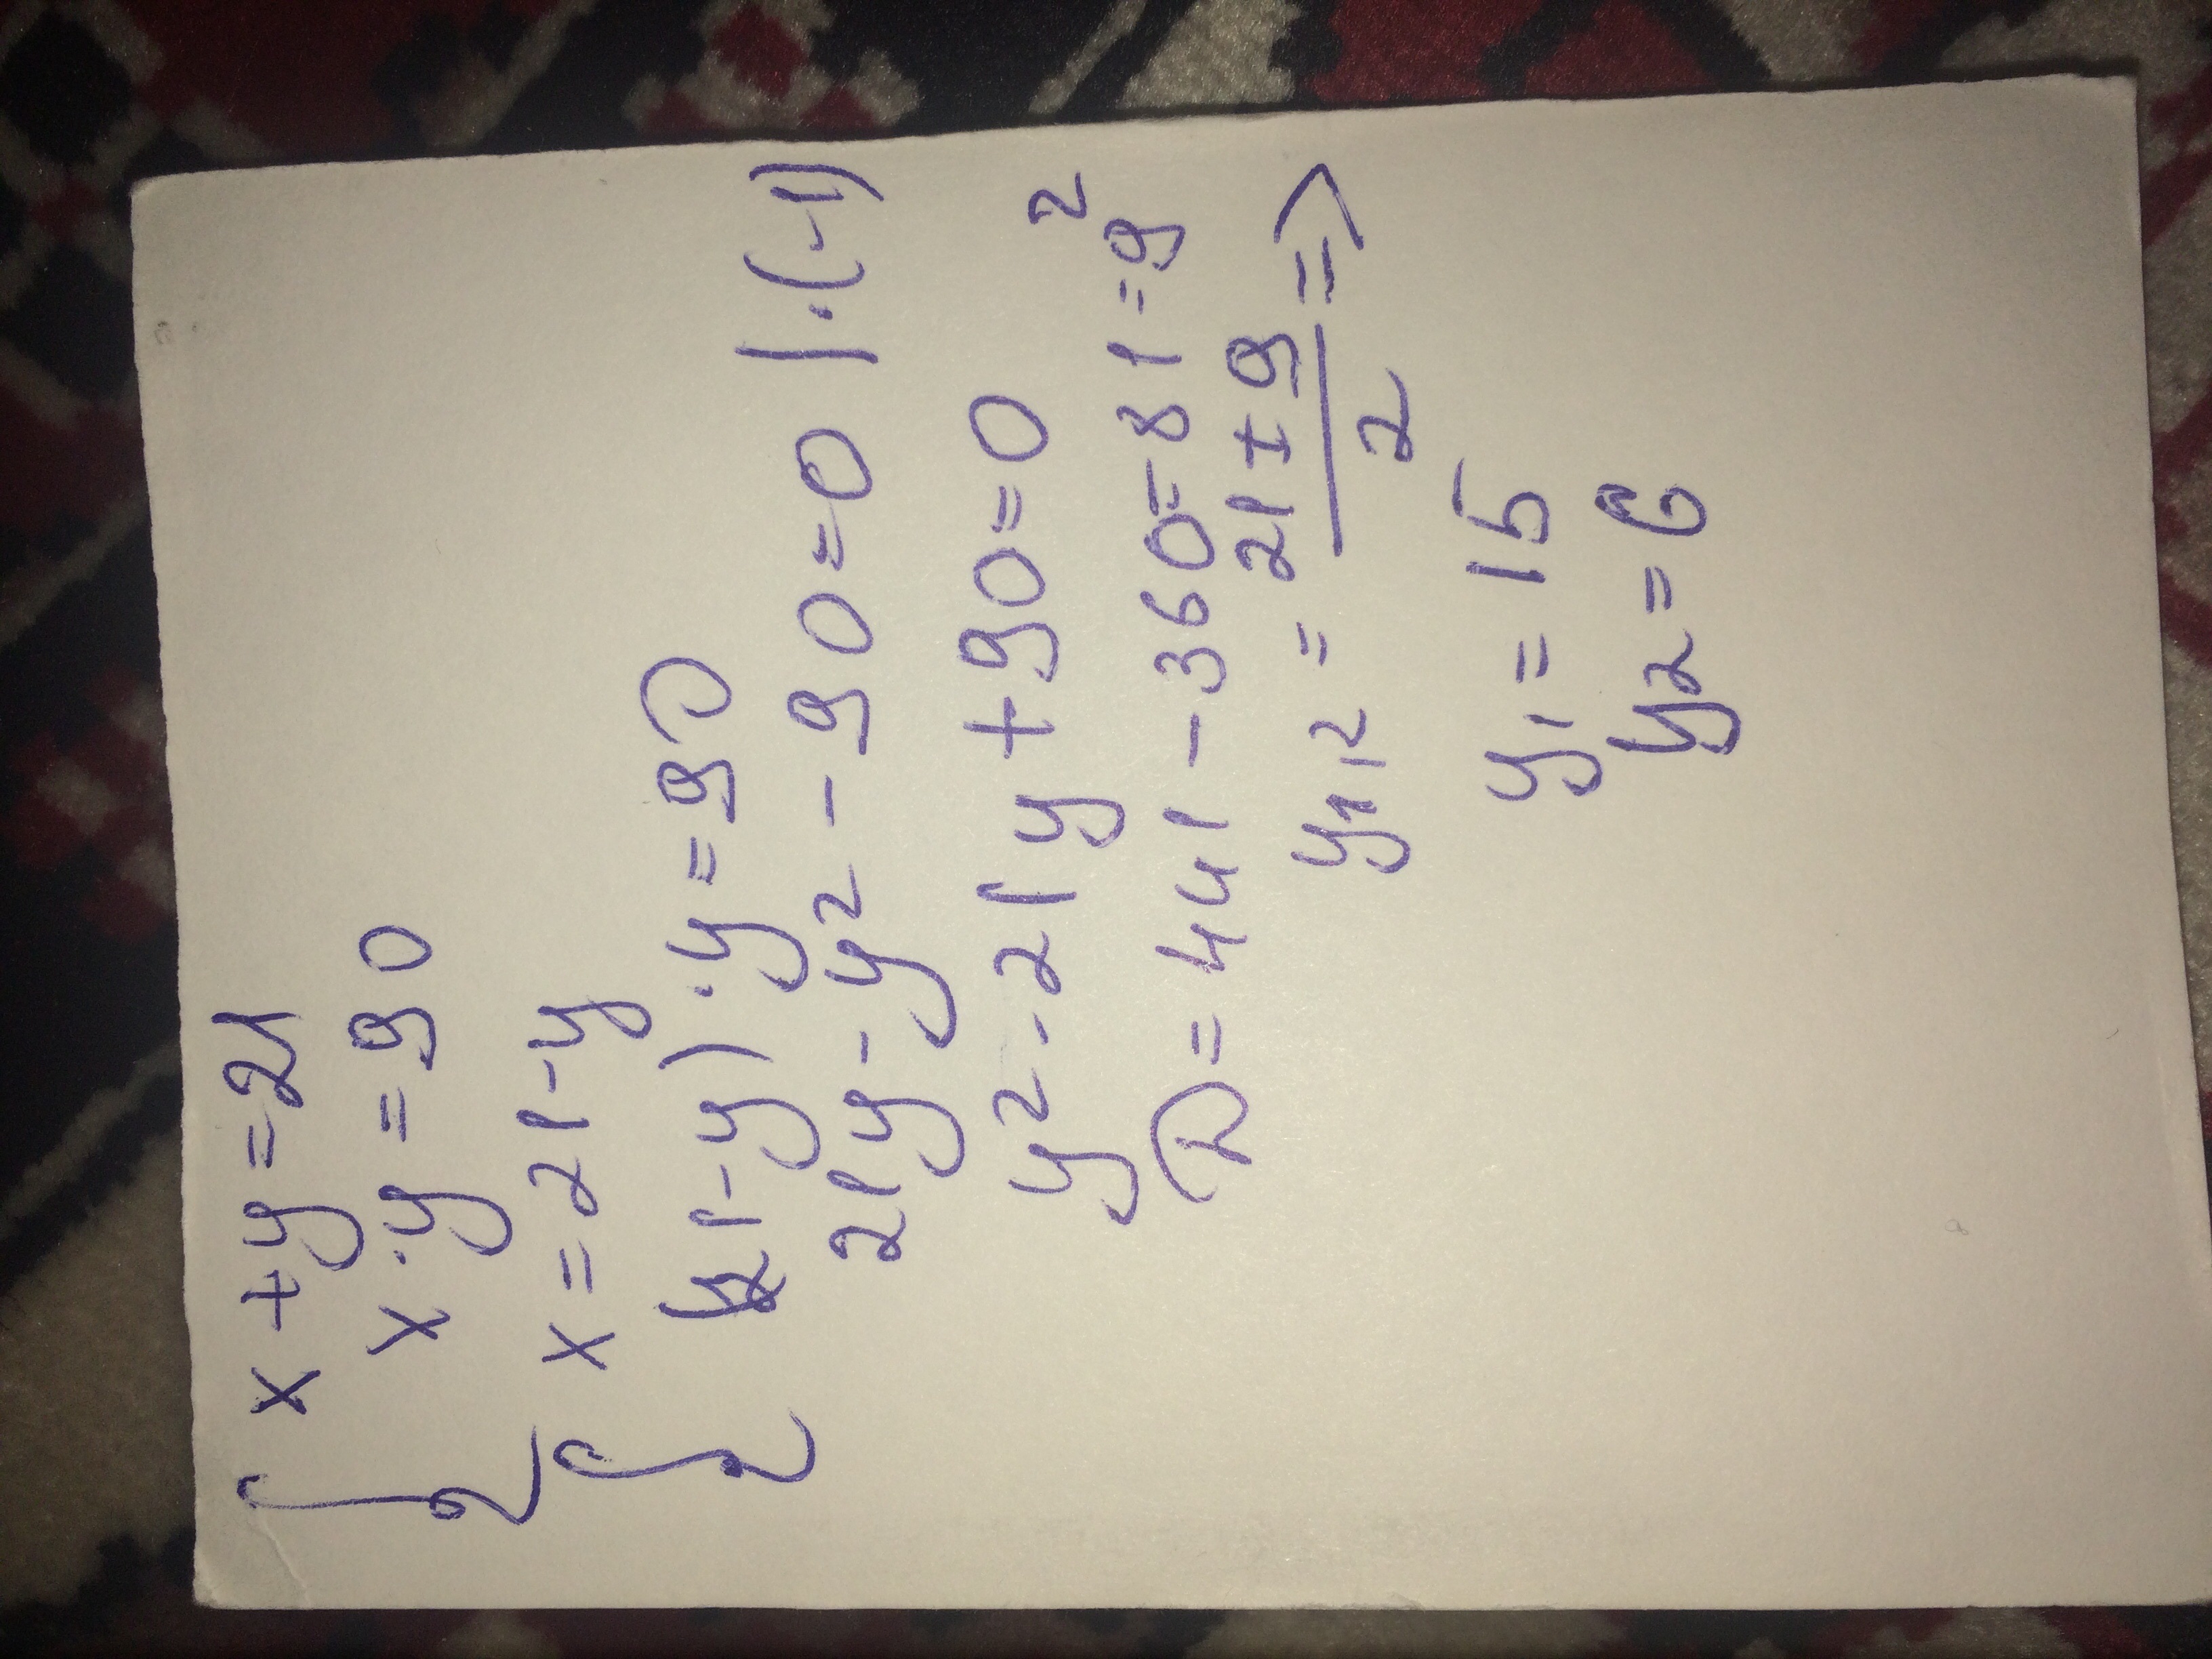 x + y = 21
x · y = 90
x = 21 - y
(21 - y) · y = 90
21y - y² - 90 = 0 | · (-1)
y² - 21y + 90 = 0
D = 441 - 360 = 81 = 9²
y₁,₂ = (21 ± 9)/2 =>
y₁ = 15
y₂ = 6